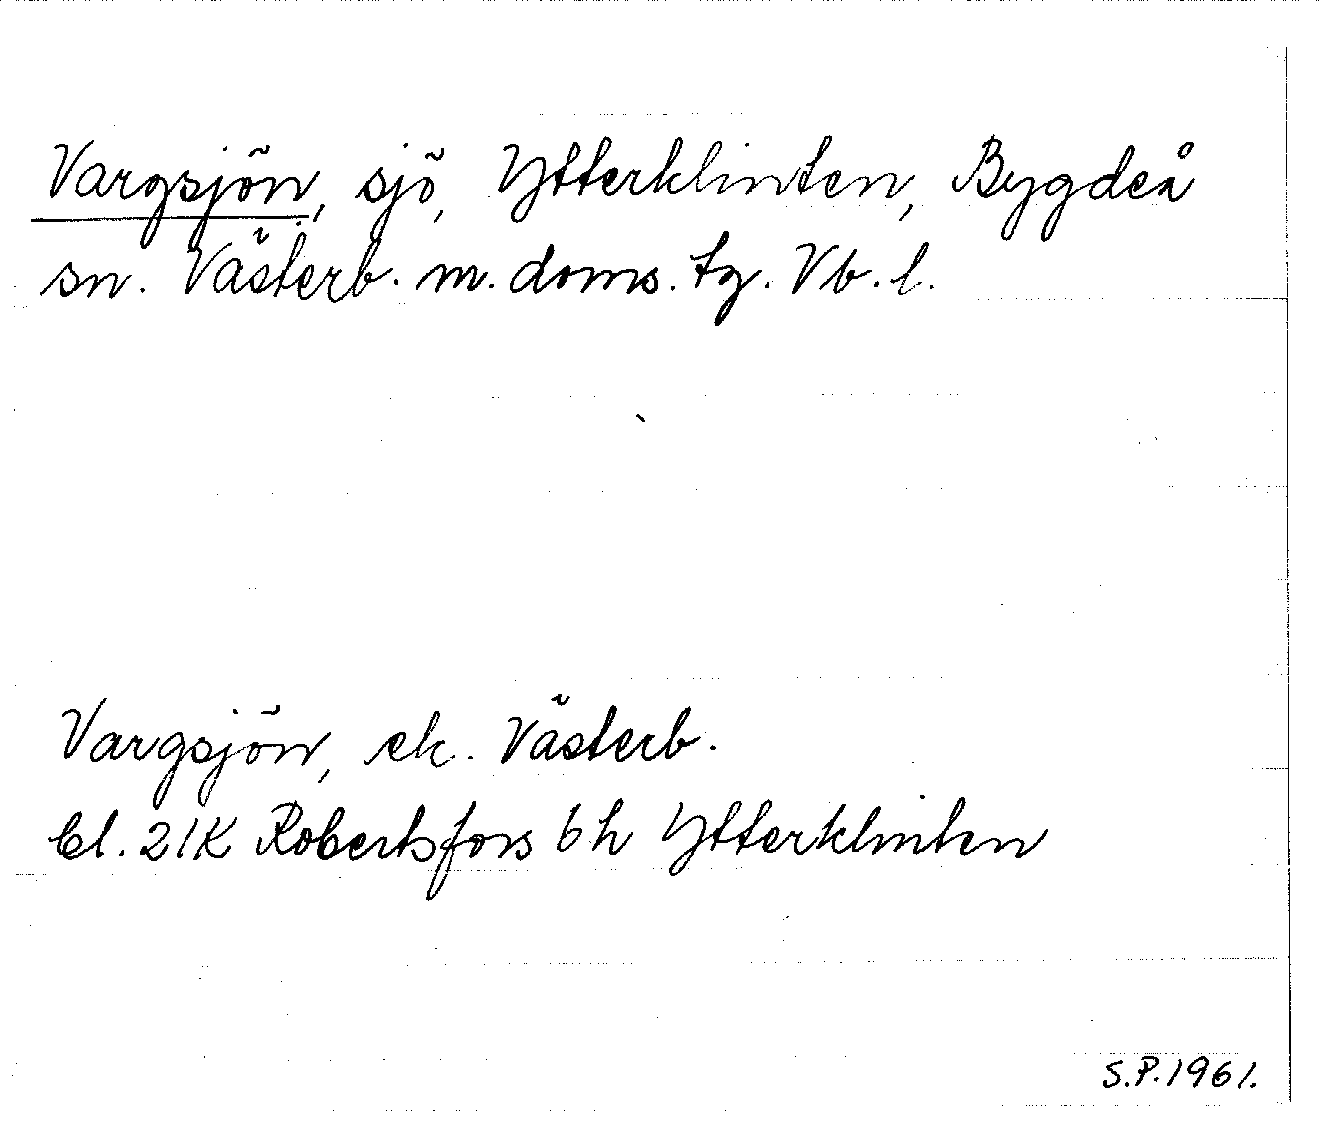 Vargsjön, sjö, Ytterklinten, Bygdeå
sn. Västerb. m. doms. tg. Vb. l.
Vargsjön, ek. Västerb.
bl. 21K Robertsfors 6 h Ytterklinten
S.P. 1961.